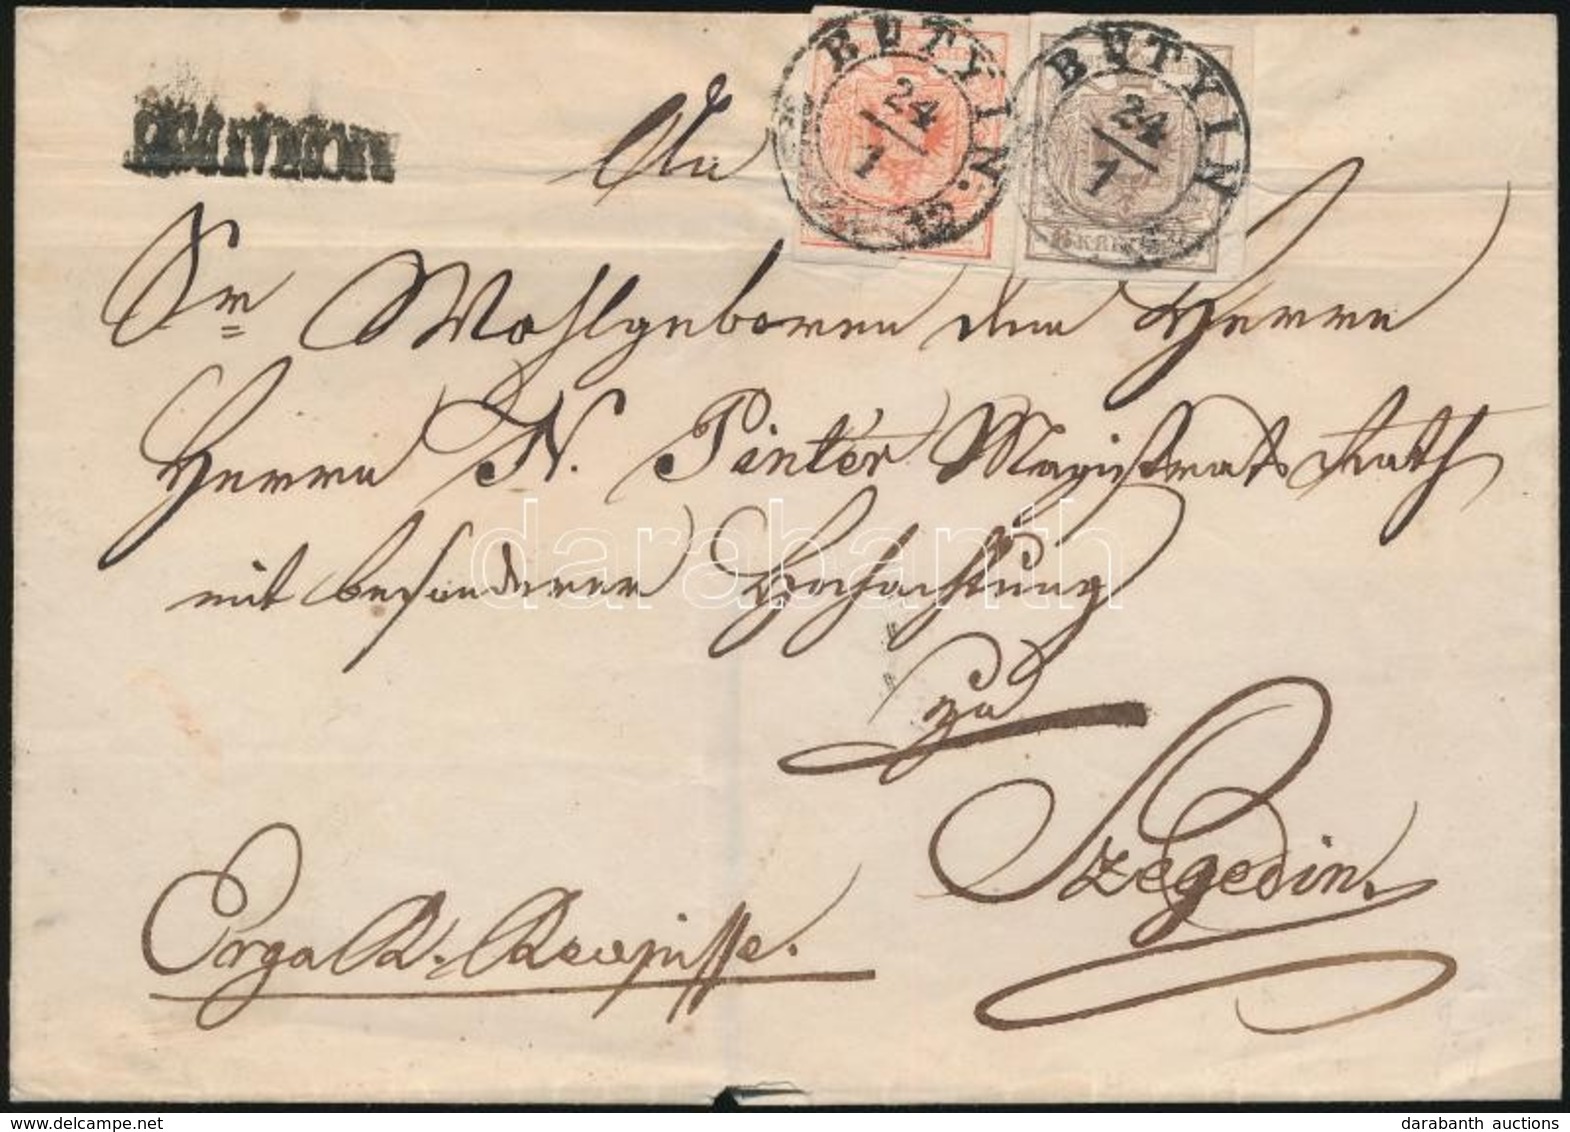 BUTYIN.
24/1
BUTYIN
24/1
An
Sr Wohlgeboren dem Herrn
Herrn N. Pintér Magistrats Rath
mit besonderer Hochachtung
zu
Szegedin.
Erga R. Recepisse.
darabanth
delcampe.net
darabanth auctions